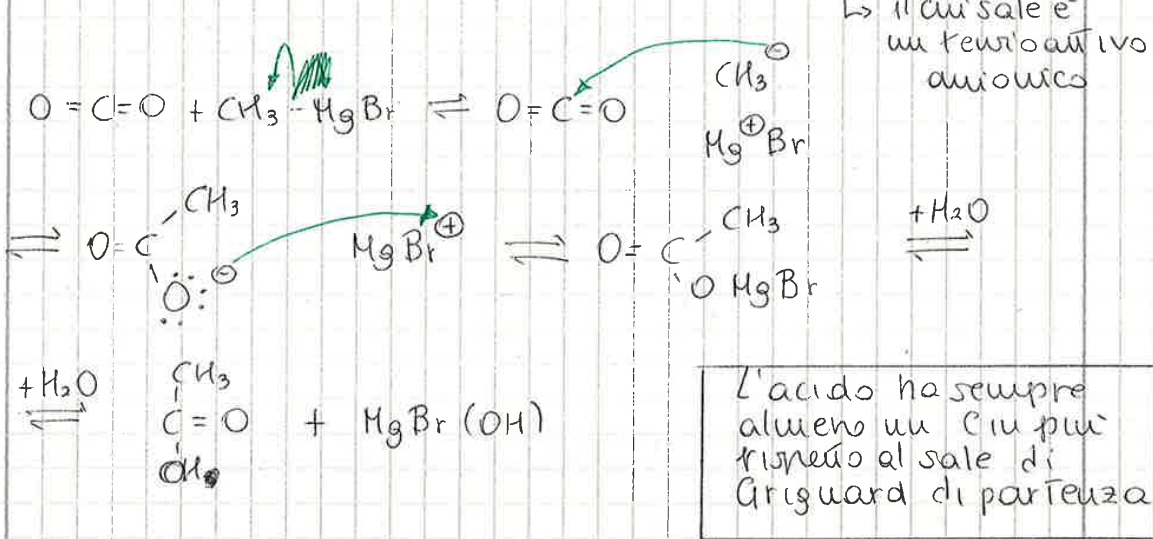 ↳ il cui sale è
un tensioattivo
anionico
O=C=O + CH3-MgBr ⇌ O=C=O CH3⊖ Mg⊕Br
⇌ O=C CH3 O:⊖ MgBr⊕ ⇌ O=C CH3 O MgBr +H2O ⇌
+H2O ⇌ CH3 C=O OH + MgBr(OH)
L'acido ha sempre
almeno un C in più
rispetto al sale di
Griguard di partenza